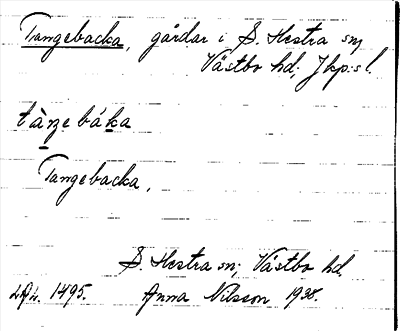 Tangebacka, gårdar i S. Hestra sn,
Västbo hd. Jkp:s l.
tàŋebáka
Tangebacka.
S. Hestra sn, Västbo hd.
1495. Anna Nilsson 1938.